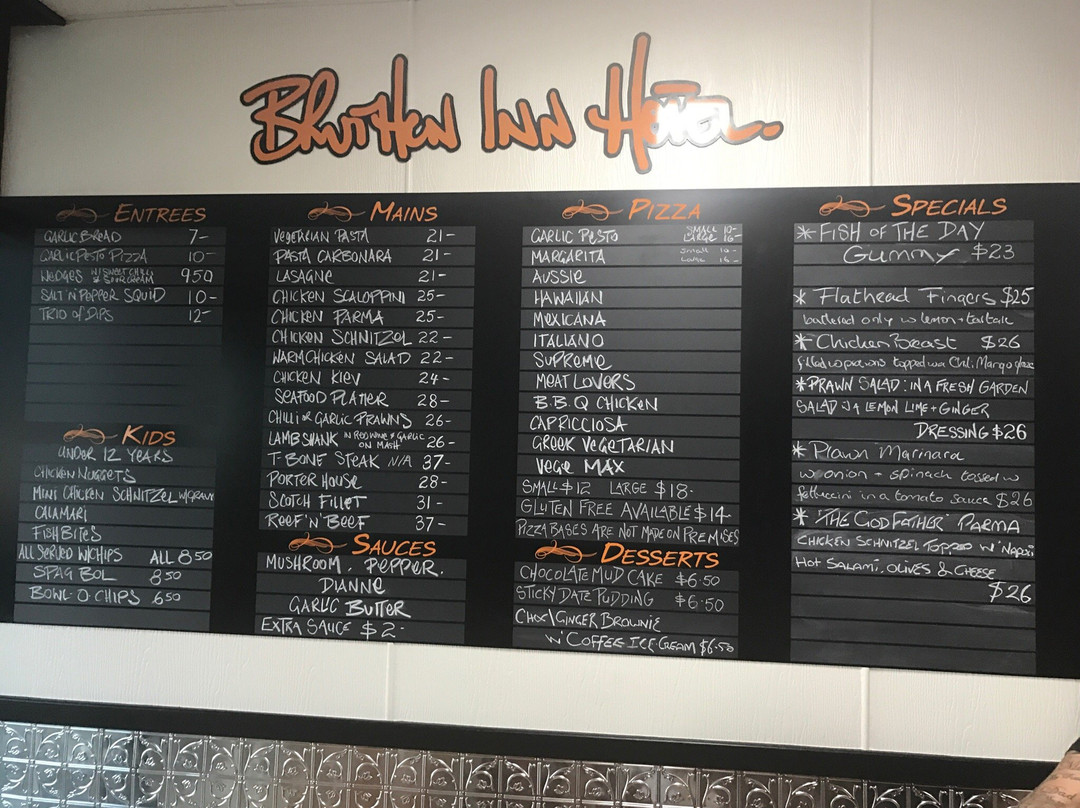 Bruthen Inn Hotel.
Entrees
Garlic Bread 7-
Garlic Pesto Pizza 10-
Wedges w/ Sweet Chilli & Sour Cream 950
Salt 'n' Pepper Squid 10-
Trio of Dips 12-
Kids
Under 12 Years
Chicken Nuggets
Mini Chicken Schnitzel w/Gravy
Calamari
Fish Bites
All Served w/Chips All 8.50
Spag Bol 8.50
Bowl.O.Chips 6.50
Mains
Vegetarian Pasta 21-
Pasta Carbonara 21-
Lasagne 21-
Chicken Scaloppini 25-
Chicken Parma 25-
Chicken Schnitzel 22-
Warm Chicken Salad 22-
Chicken Kiev 24-
Seafood Platter 28-
Chilli or Garlic Prawns 26-
Lamb Shank in Red Wine & Garlic on Mash 26-
T Bone Steak N/A 37-
Porter House 28-
Scotch Fillet 31-
Reef 'n' Beef 37-
Sauces
Mushroom. Pepper.
Dianne
Garlic Butter
Extra Sauce $2-
Pizza
Garlic Pesto Small 10- Large 16-
Margarita Small 10- Large 16-
Aussie
Hawaiian
Mexicana
Italiano
Supreme
Meat Lovers
B.B.Q Chicken
Capricciosa
Greek Vegetarian
Vege Max
Small $12 Large $18-
Gluten Free Available $14-
Pizza Bases Are Not Made on Premises
Desserts
Chocolate Mud Cake $6.50
Sticky Date Pudding $6.50
Choc\Ginger Brownie
w' Coffee Ice-Cream $6.50
Specials
* Fish of the Day
Gummy $23
* Flathead Fingers $25
battered only w lemon + tartare
* Chicken Breast $26
filled w prawns topped w a Chil. Mango glaze
* Prawn Salad: in a Fresh Garden
Salad w a Lemon Lime + Ginger
Dressing $26
* Prawn Marinara
w onion + spinach tossed w
fettuccini in a tomato sauce $26
* 'The Godfather' Parma
Chicken Schnitzel Topped w' Napoli
Hot Salami, Olives & Cheese
$26